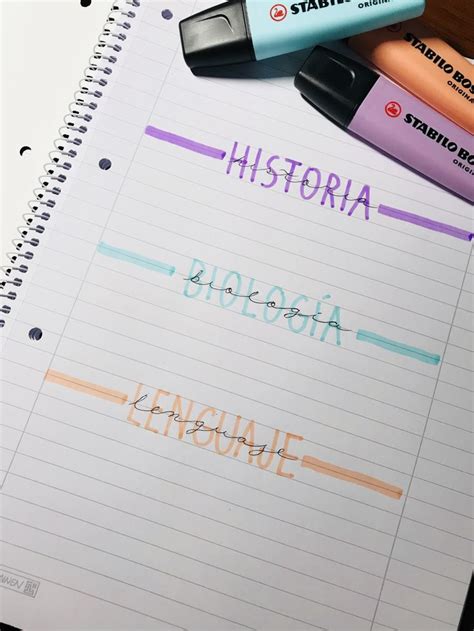 STABILO BOSS
ORIGINAL
STABILO BOSS
ORIGINAL
STABILO BOSS
ORIGINAL
HISTORIA
historia
BIOLOGÍA
biología
LENGUAJE
lenguaje